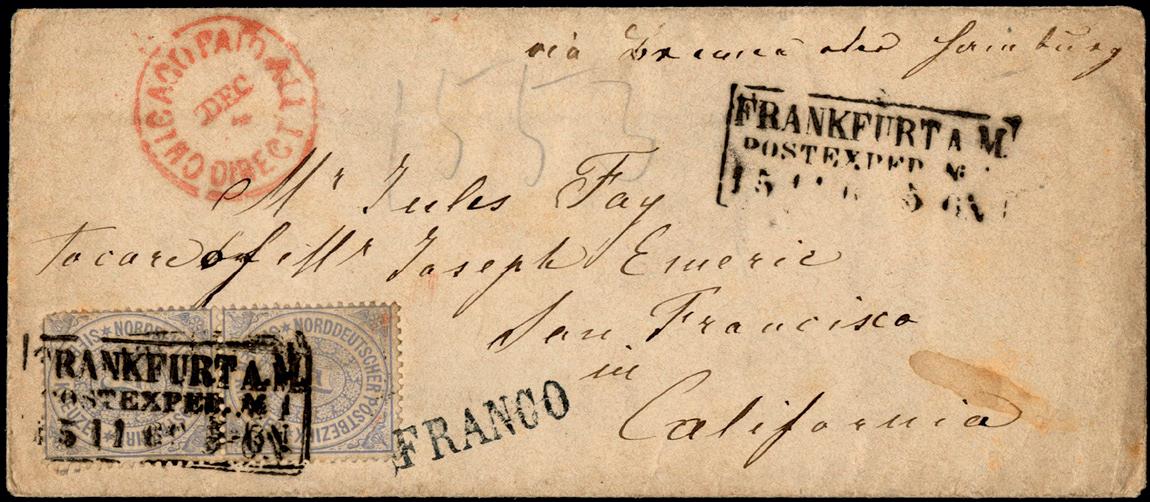 CHICAGO PAID ALL DIRECT
DEC
via Bremen oder Hamburg
1553
FRANKFURT A. M.
POSTEXPED. N
15 11
Mr Jules Fay
to care of Mr Joseph Emeric
San Francisco
in
California
NORDDEUTSCHER POSTBEZIRK
NORDDEUTSCHER POSTBEZIRK
FRANKFURT A. M.
POSTEXPED. N 1
5 11
FRANCO